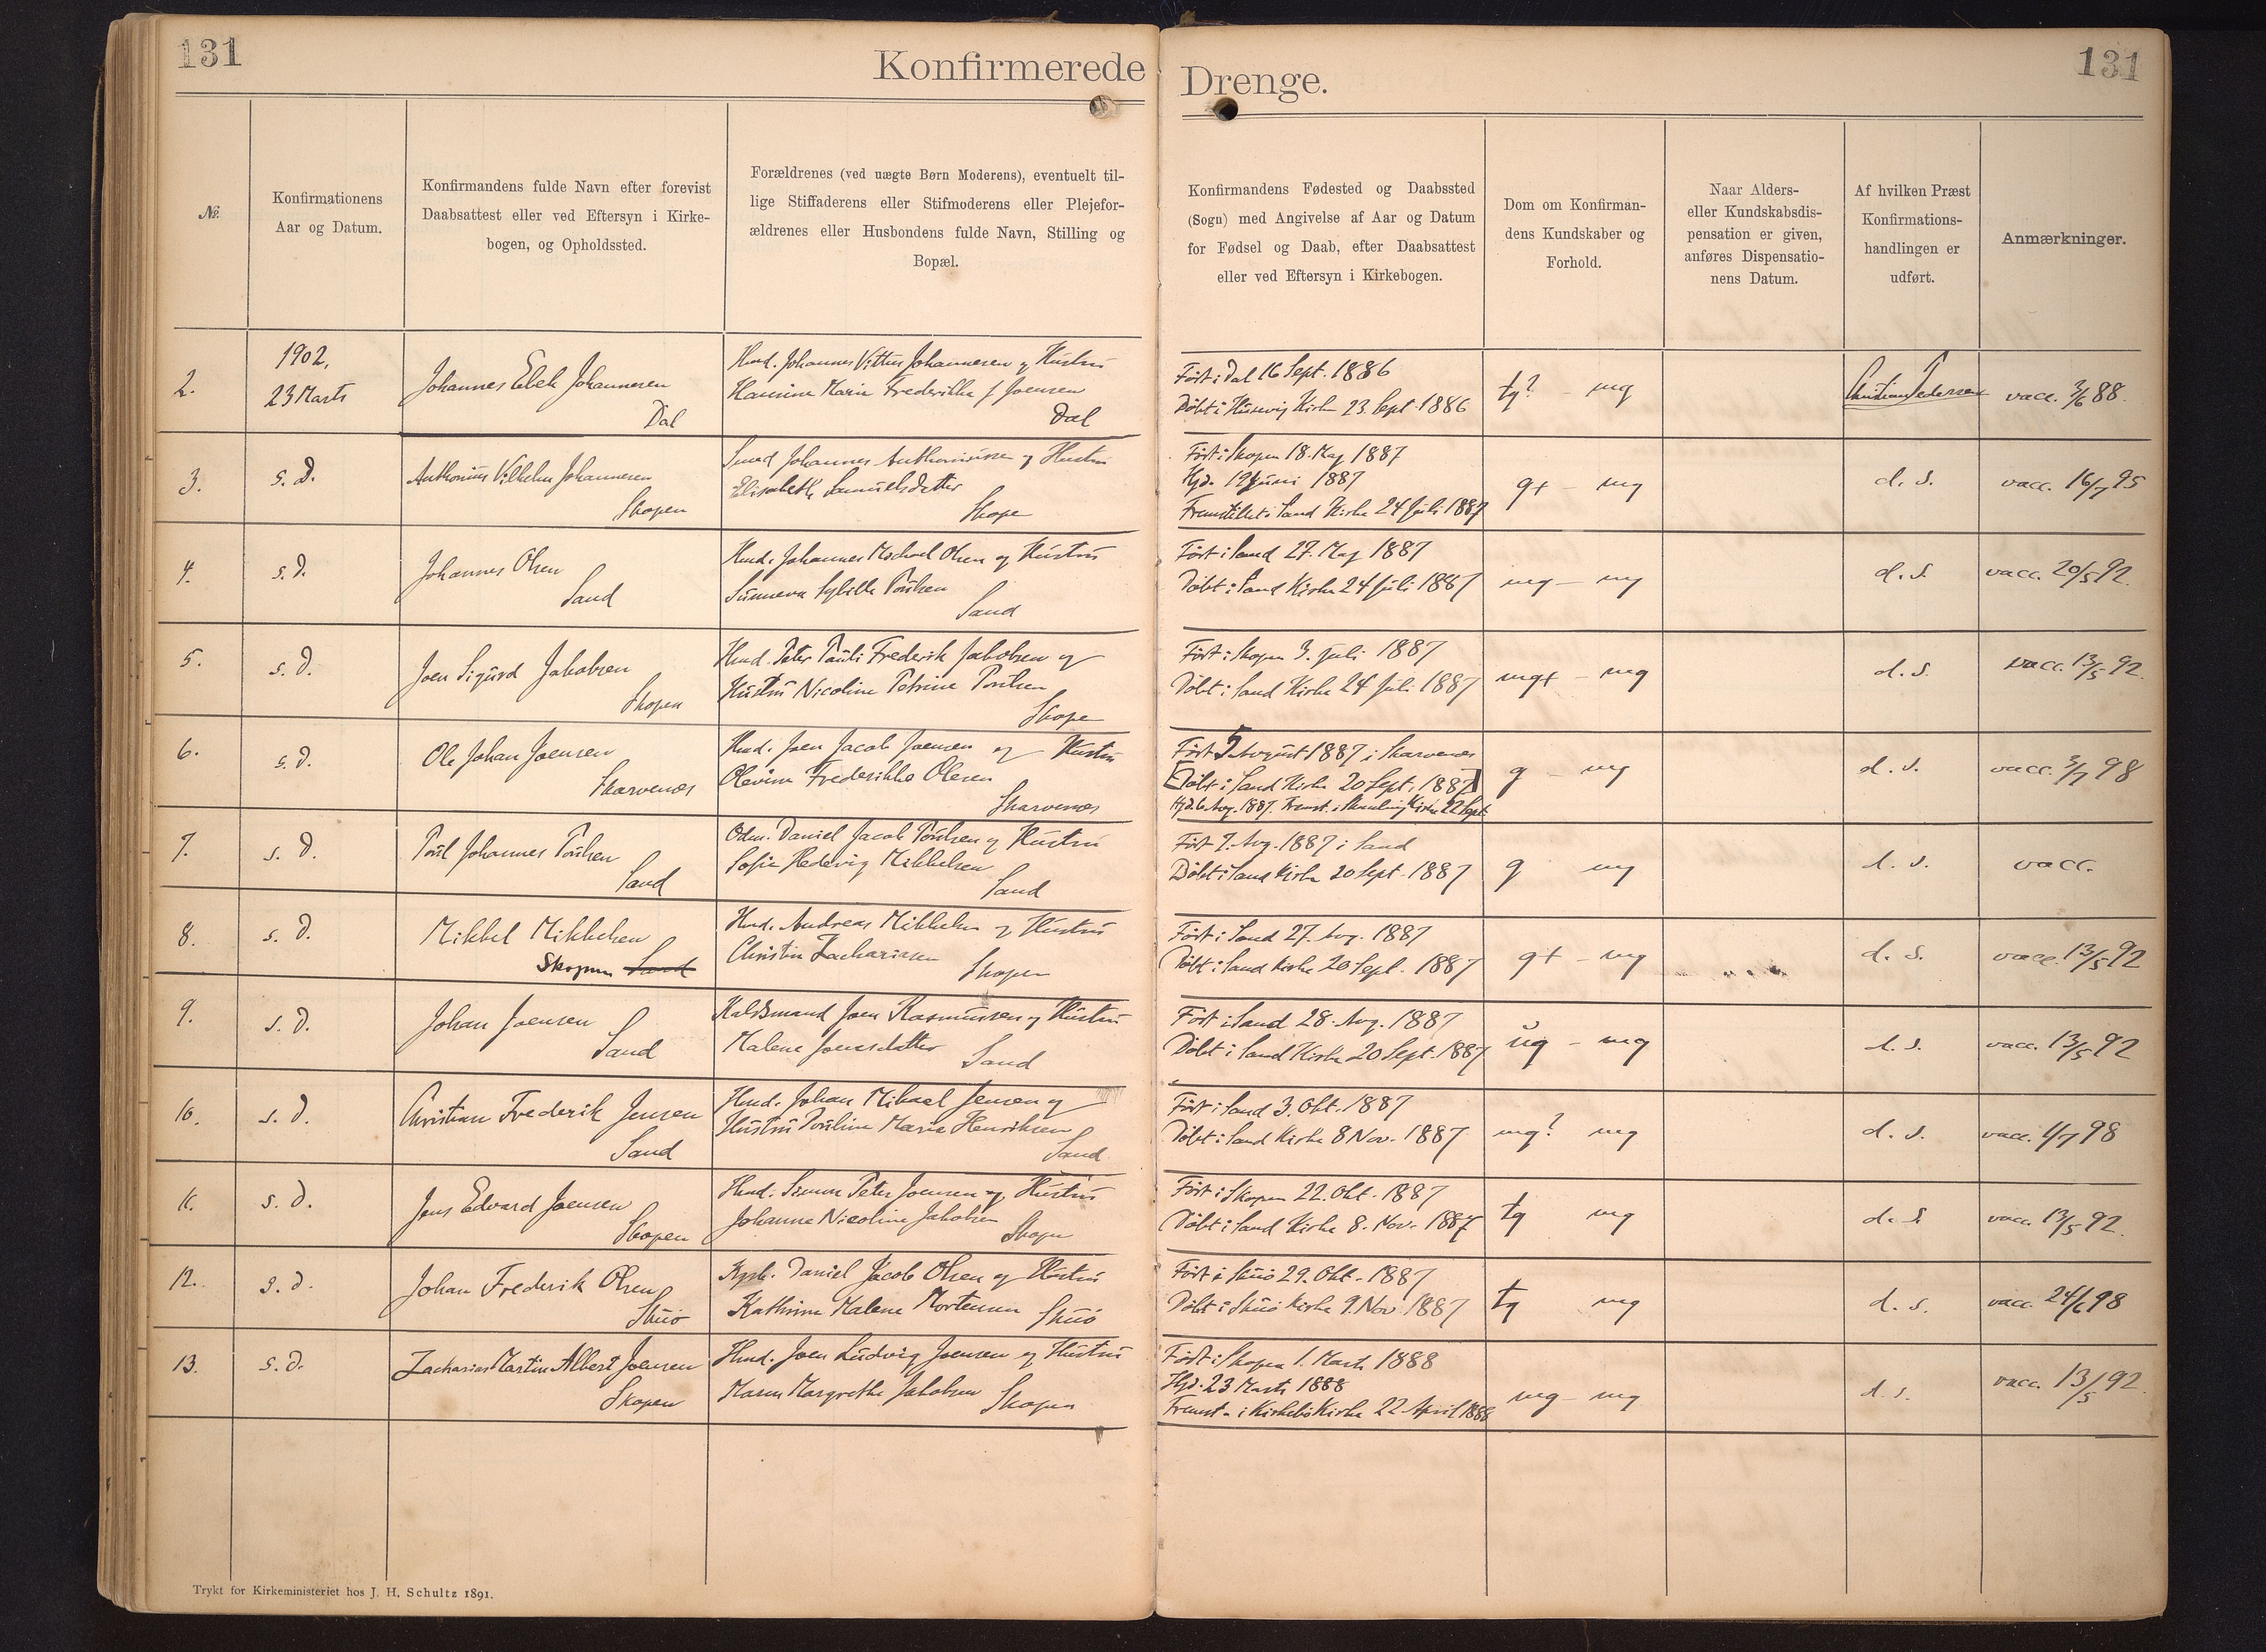 131
Konfirmerede
Drenge.
131
№.
Konfirmationens
Aar og Datum.
Konfirmandens fulde Navn efter forevist
Daabsattest eller ved Eftersyn i Kirke-
bogen, og Opholdssted.
Forældrenes (ved uægte Børn Moderens), eventuelt til-
lige Stiffaderens eller Stifmoderens eller Plejefor-
ældrenes eller Husbondens fulde Navn, Stilling og
Bopæl.
Konfirmandens Fødested og Daabssted
(Sogn) med Angivelse af Aar og Datum
for Fødsel og Daab, efter Daabsattest
eller ved Eftersyn i Kirkebogen.
Dom om Konfirman-
dens Kundskaber og
Forhold.
Naar Alders-
eller Kundskabsdis-
pensation er given,
anføres Dispensatio-
nens Datum.
Af hvilken Præst
Konfirmations-
handlingen er
udført.
Anmærkninger.
2.
1902,
23 Marts
Johannes Johannesen
Dal
Hmd. Johannes Vittus Johannesen og Hustru
Marie Frederikke f Joensen
Dal
Født i Dal 16 Sept. 1886
Døbt i Húsevig Kirke 23 Sept. 1886
tg? - mg
Christian Pedersen
vacc. 3/6 88.
3.
s. D.
Anthonius Vilhelm Johannesen
Skopen
Smed Johannes og Hustru
Elisabeth Samuelsdatter
Skope
Født i Skopen 18. Maj 1887
Hjd. 19 Juni 1887
Fremstillet i Sand Kirke 24 Juli 1887
g+ - mg
d. s.
vacc. 16/7 95
4.
s. D.
Johannes Olsen
Sand
Hmd. Johannes Michael Olsen og Hustru
Sunneva Sybille Poulsen
Sand
Født i Sand 27. Maj 1887
Døbt i Sand Kirke 24 Juli 1887
mg - mg
d. s.
vacc. 20/5 92.
5.
s. D.
Joen Sigurd Jakobsen
Skopen
Hmd. Peter Pauli Frederik Jakobsen og
Hustru Nicoline Petrine Poulsen
Skope
Født i Skopen 3. Juli 1887
Døbt i Sand Kirke 24 Juli 1887
mg+ - mg
d. s.
vacc. 13/5 92.
6.
s. D.
Ole Johan Joensen
Skarvenæs
Hmd. Joen Jacob Joensen og Hustru
Olevine Frederikke Olesen
Skarvenæs
Født 5 August 1887 i Skarvenæs
[Døbt i Sand Kirke 20 Sept. 1887]
Hjd. 6 Aug. 1887. Fremst. i Kirke 22 Sept.
g - mg
d. s.
vacc. 3/7 98
7.
s. D.
Poul Johannes Poulsen
Sand
Daniel Jacob Poulsen og Hustru
Sofie Hedevig Mikkelsen
Sand
Født 7. Aug. 1887 i Sand
Døbt i Sand Kirke 20 Sept. 1887
g mg
d. s.
vacc.
8.
s. D.
Mikkel Mikkelsen
Skopen Sand
Hmd. Andreas Mikkelsen og Hustru
Christine Zachariasen
Skopen
Født i Sand 27. Aug. 1887
Døbt i Sand Kirke 20 Sept. 1887
g+ - mg
d. s.
vacc. 13/5 92
9.
s. D.
Johan Joensen
Sand
Joen Rasmussen og Hustru
Malene Joensdatter
Sand
Født i Sand 28. Aug. 1887
Døbt i Sand Kirke 20 Sept. 1887
ug - mg
d. s.
vacc. 13/5 92
10.
s. D.
Christian Frederik Jensen
Sand
Hmd. Johan Mikael Jensen og
Hustru Pouline Marie Henriksen
Sand
Født i Sand 3. Okt. 1887
Døbt i Sand Kirke 8 Nov. 1887
mg? mg
d. s.
vacc. 4/7 98
11.
s. D.
Jens Edvard Joensen
Skopen
Hmd. Simon Peter Joensen og Hustru
Johanne Nicoline Jakobsen
Skopen
Født i Skopen 22. Okt. 1887
Døbt i Sand Kirke 8. Nov. 1887
tg mg
d. s.
vacc. 13/5 92.
12.
s. D.
Johan Frederik Olsen
Skúo
Daniel Jacob Olsen og Hustru
Kathrine Malene Mortensen Skúo
Født i Skúo 29. Okt. 1887
Døbt i Skúo Kirke 9. Nov. 1887
tg mg
d. s.
vacc. 24/6 98
13.
s. D.
Zacharias Martin Albert Joensen
Skopen
Hmd. Joen Ludvig Joensen og Hustru
Maren Margrethe Jakobsen Skopen
Født i Skopen 1. Marts 1888
Hjd. 23 Marts 1888
Fremst. i Kirkebø Kirke 22 April 1888
mg - mg
d. s.
vacc. 13/5 92
Trykt for Kirkeministeriet hos J. H. Schultz 1891.